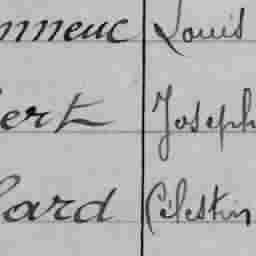 nneuc Louis
ert Joseph
lard Célestin